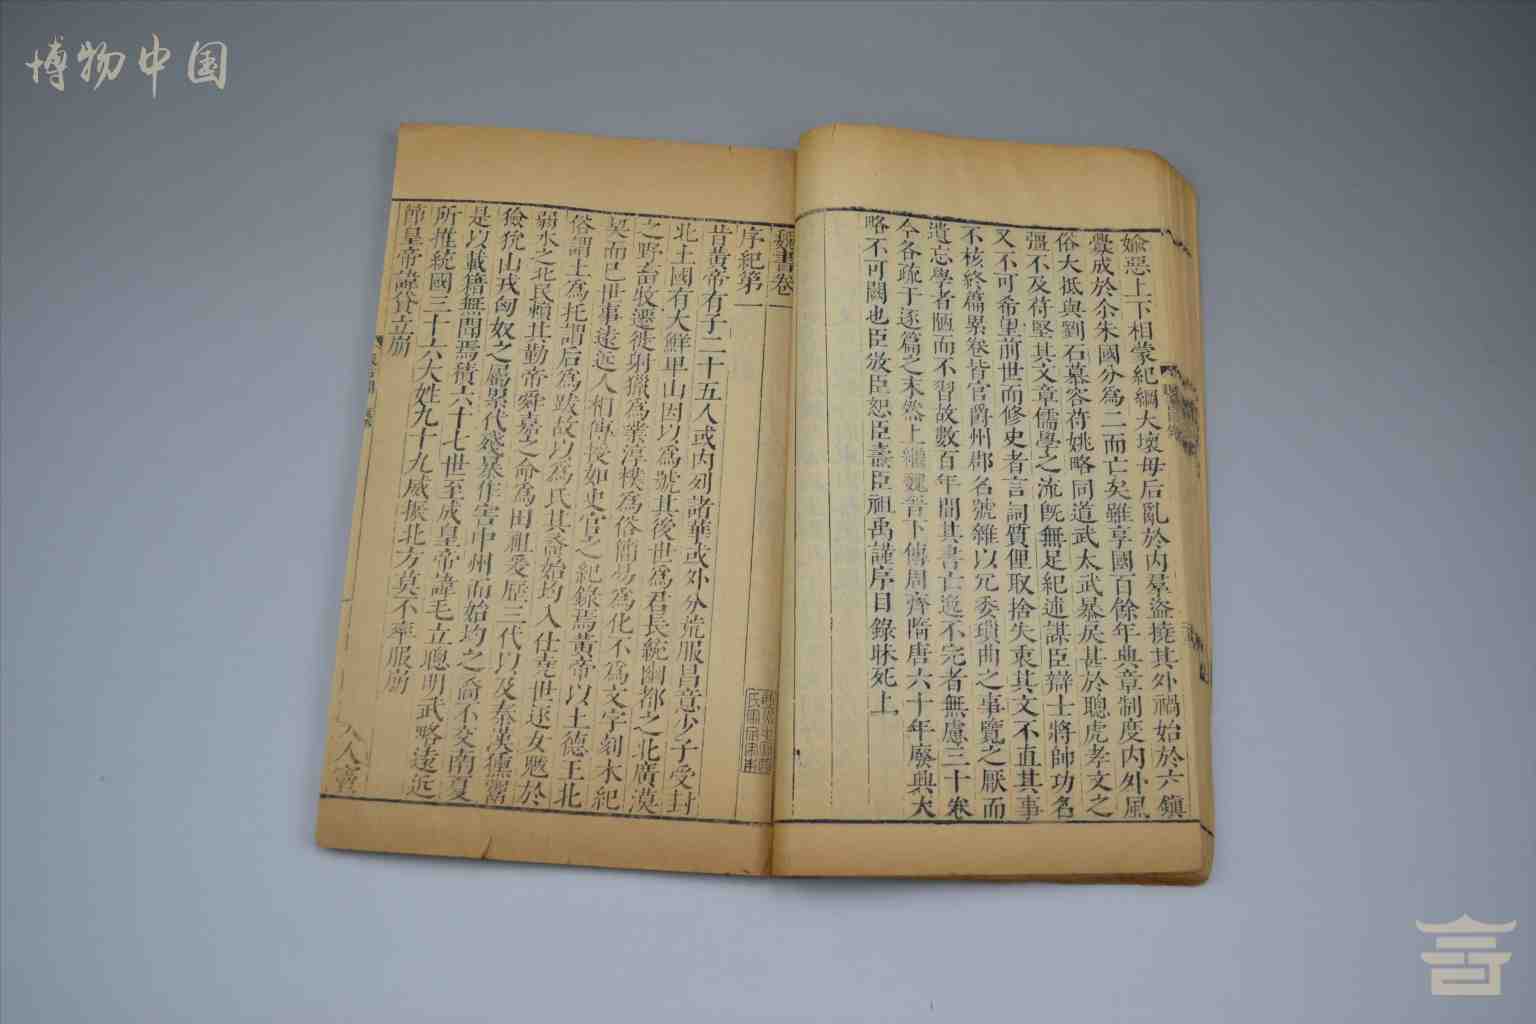 博物中国
媮惡上下相蒙紀綱大壞母后亂於内羣盜撓其外禍始於六鎮
釁成於尒朱國分爲二而亡矣雖享國百餘年典章制度内外風
俗大抵與劉石慕容苻姚略同道武太武暴戾甚於聰虎孝文之
彊不及苻堅其文章儒學之流旣無足紀述謀臣辯士將帥功名
又不可希望前世而修史者言詞質俚取捨失衷其文不直其事
不核終篇累卷皆官爵州郡名號雜以冗委瑣曲之事覽之厭而
遺忘學者陋而不習故數百年間其書亡逸不完者無慮三十卷
今各疏于逐篇之末然上繼魏晉下傳周齊隋唐六十年廢興大
略不可闕也臣攽臣恕臣燾臣祖禹謹序目錄昧死上
魏書卷一
序紀第一
昔黃帝有子二十五人或内列諸華或外分荒服昌意少子受封
北土國有大鮮卑山因以爲號其後世爲君長統幽都之北廣漠
之野畜牧遷徙射獵爲業淳樸爲俗簡易爲化不爲文字刻木紀
契而已世事遠近人相傳授如史官之紀錄焉黃帝以土德王北
俗謂土爲托謂后爲跋故以爲氏其裔始均入仕堯世逐女魃於
弱水之北民賴其勤帝舜嘉之命爲田祖爰歷三代以及秦漢獯鬻
獫狁山戎匈奴之屬累代殘暴作害中州而始均之裔不交南夏
是以載籍無聞焉積六十七世至成皇帝諱毛立聰明武略遠近
所推統國三十六大姓九十九威振北方莫不率服崩
節皇帝諱貸立崩